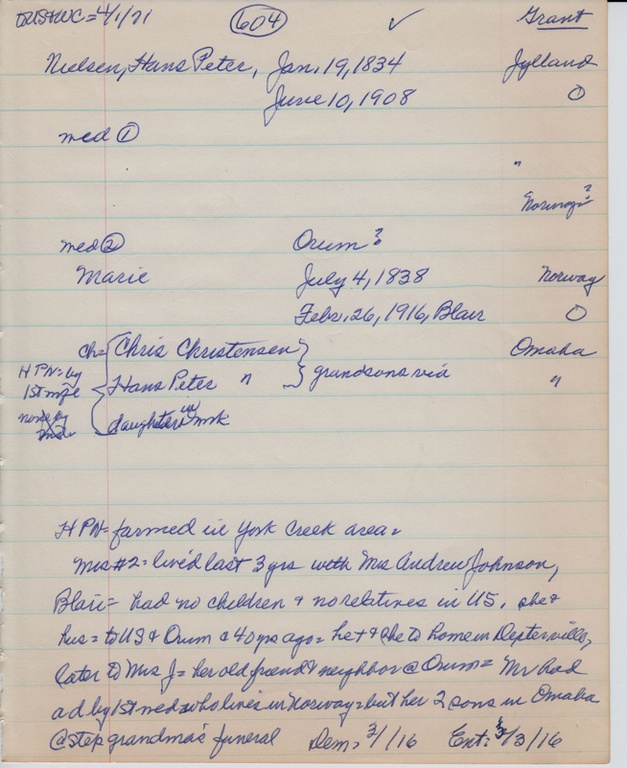 4/1/71 604 ✓ Grant
Nielsen, Hans Peter, Jan. 19, 1834 Jylland
June 10, 1908 O
med ①
"
Norway?
med ② Orum?
Marie July 4, 1838 Norway
Febr. 26, 1916, Blair O
ch= Chris Christensen Omaha
HPN= by
1st wife Hans Peter " grandsons via "
none by
daughter in
HPN= farmed in York Creek area=
Mrs #2= lived last 3 yrs with Mrs Andrew Johnson,
Blair= had no children & no relatives in US, she &
hus= to US & Orum c 40 yrs ago= he & she to home in
later to Mrs J= her old friend & neighbor @ Orum= Mr had
a d by 1st med who lives in Norway= but her 2 sons in Omaha
@ step grandma's funeral Dem= 3/1/16 Ent: 3/3/16